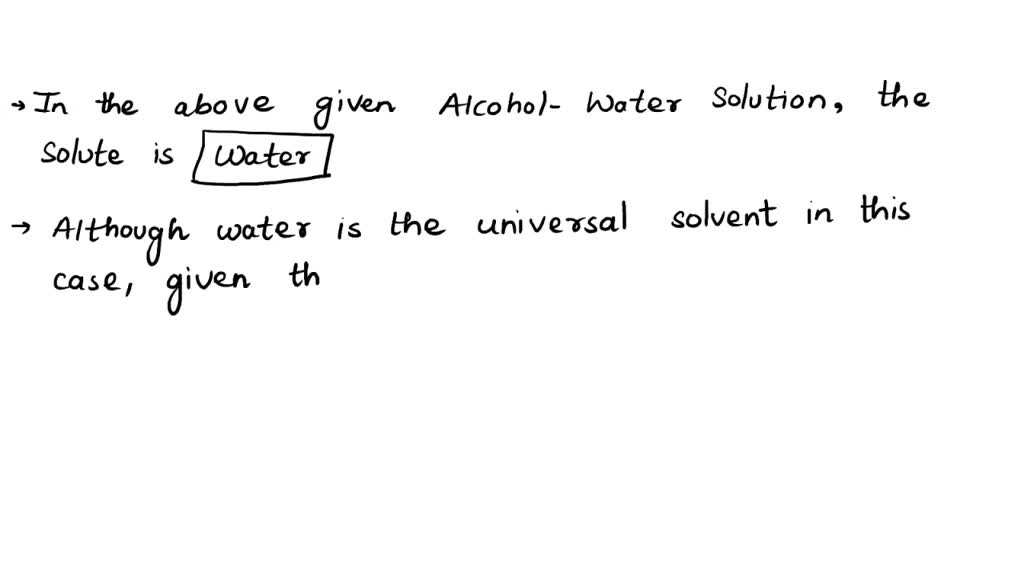 → In the above given Alcohol- Water Solution, the
Solute is Water
→ Although water is the universal solvent in this
case, given th